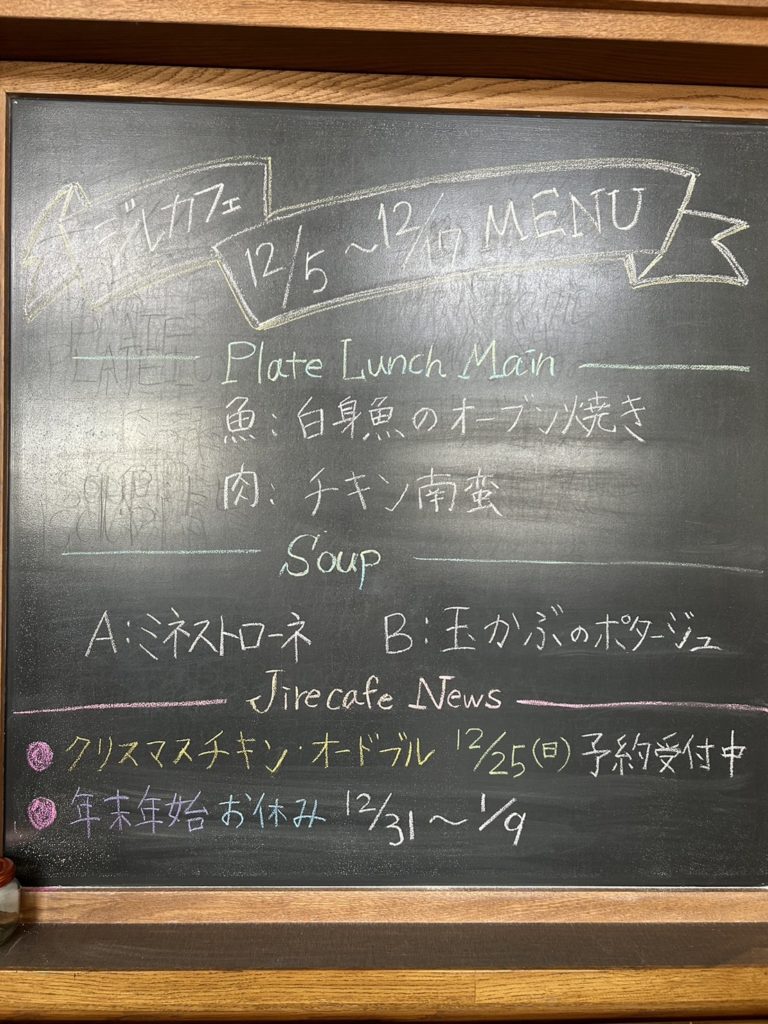 ジルカフェ
12/5～12/17 MENU
Plate Lunch Main
魚：白身魚のオーブン焼き
肉：チキン南蛮
Soup
A：ミネストローネ B：玉かぶのポタージュ
Jirecafe News
クリスマスチキン・オードブル 12/25(日)予約受付中
年末年始お休み 12/31～1/9